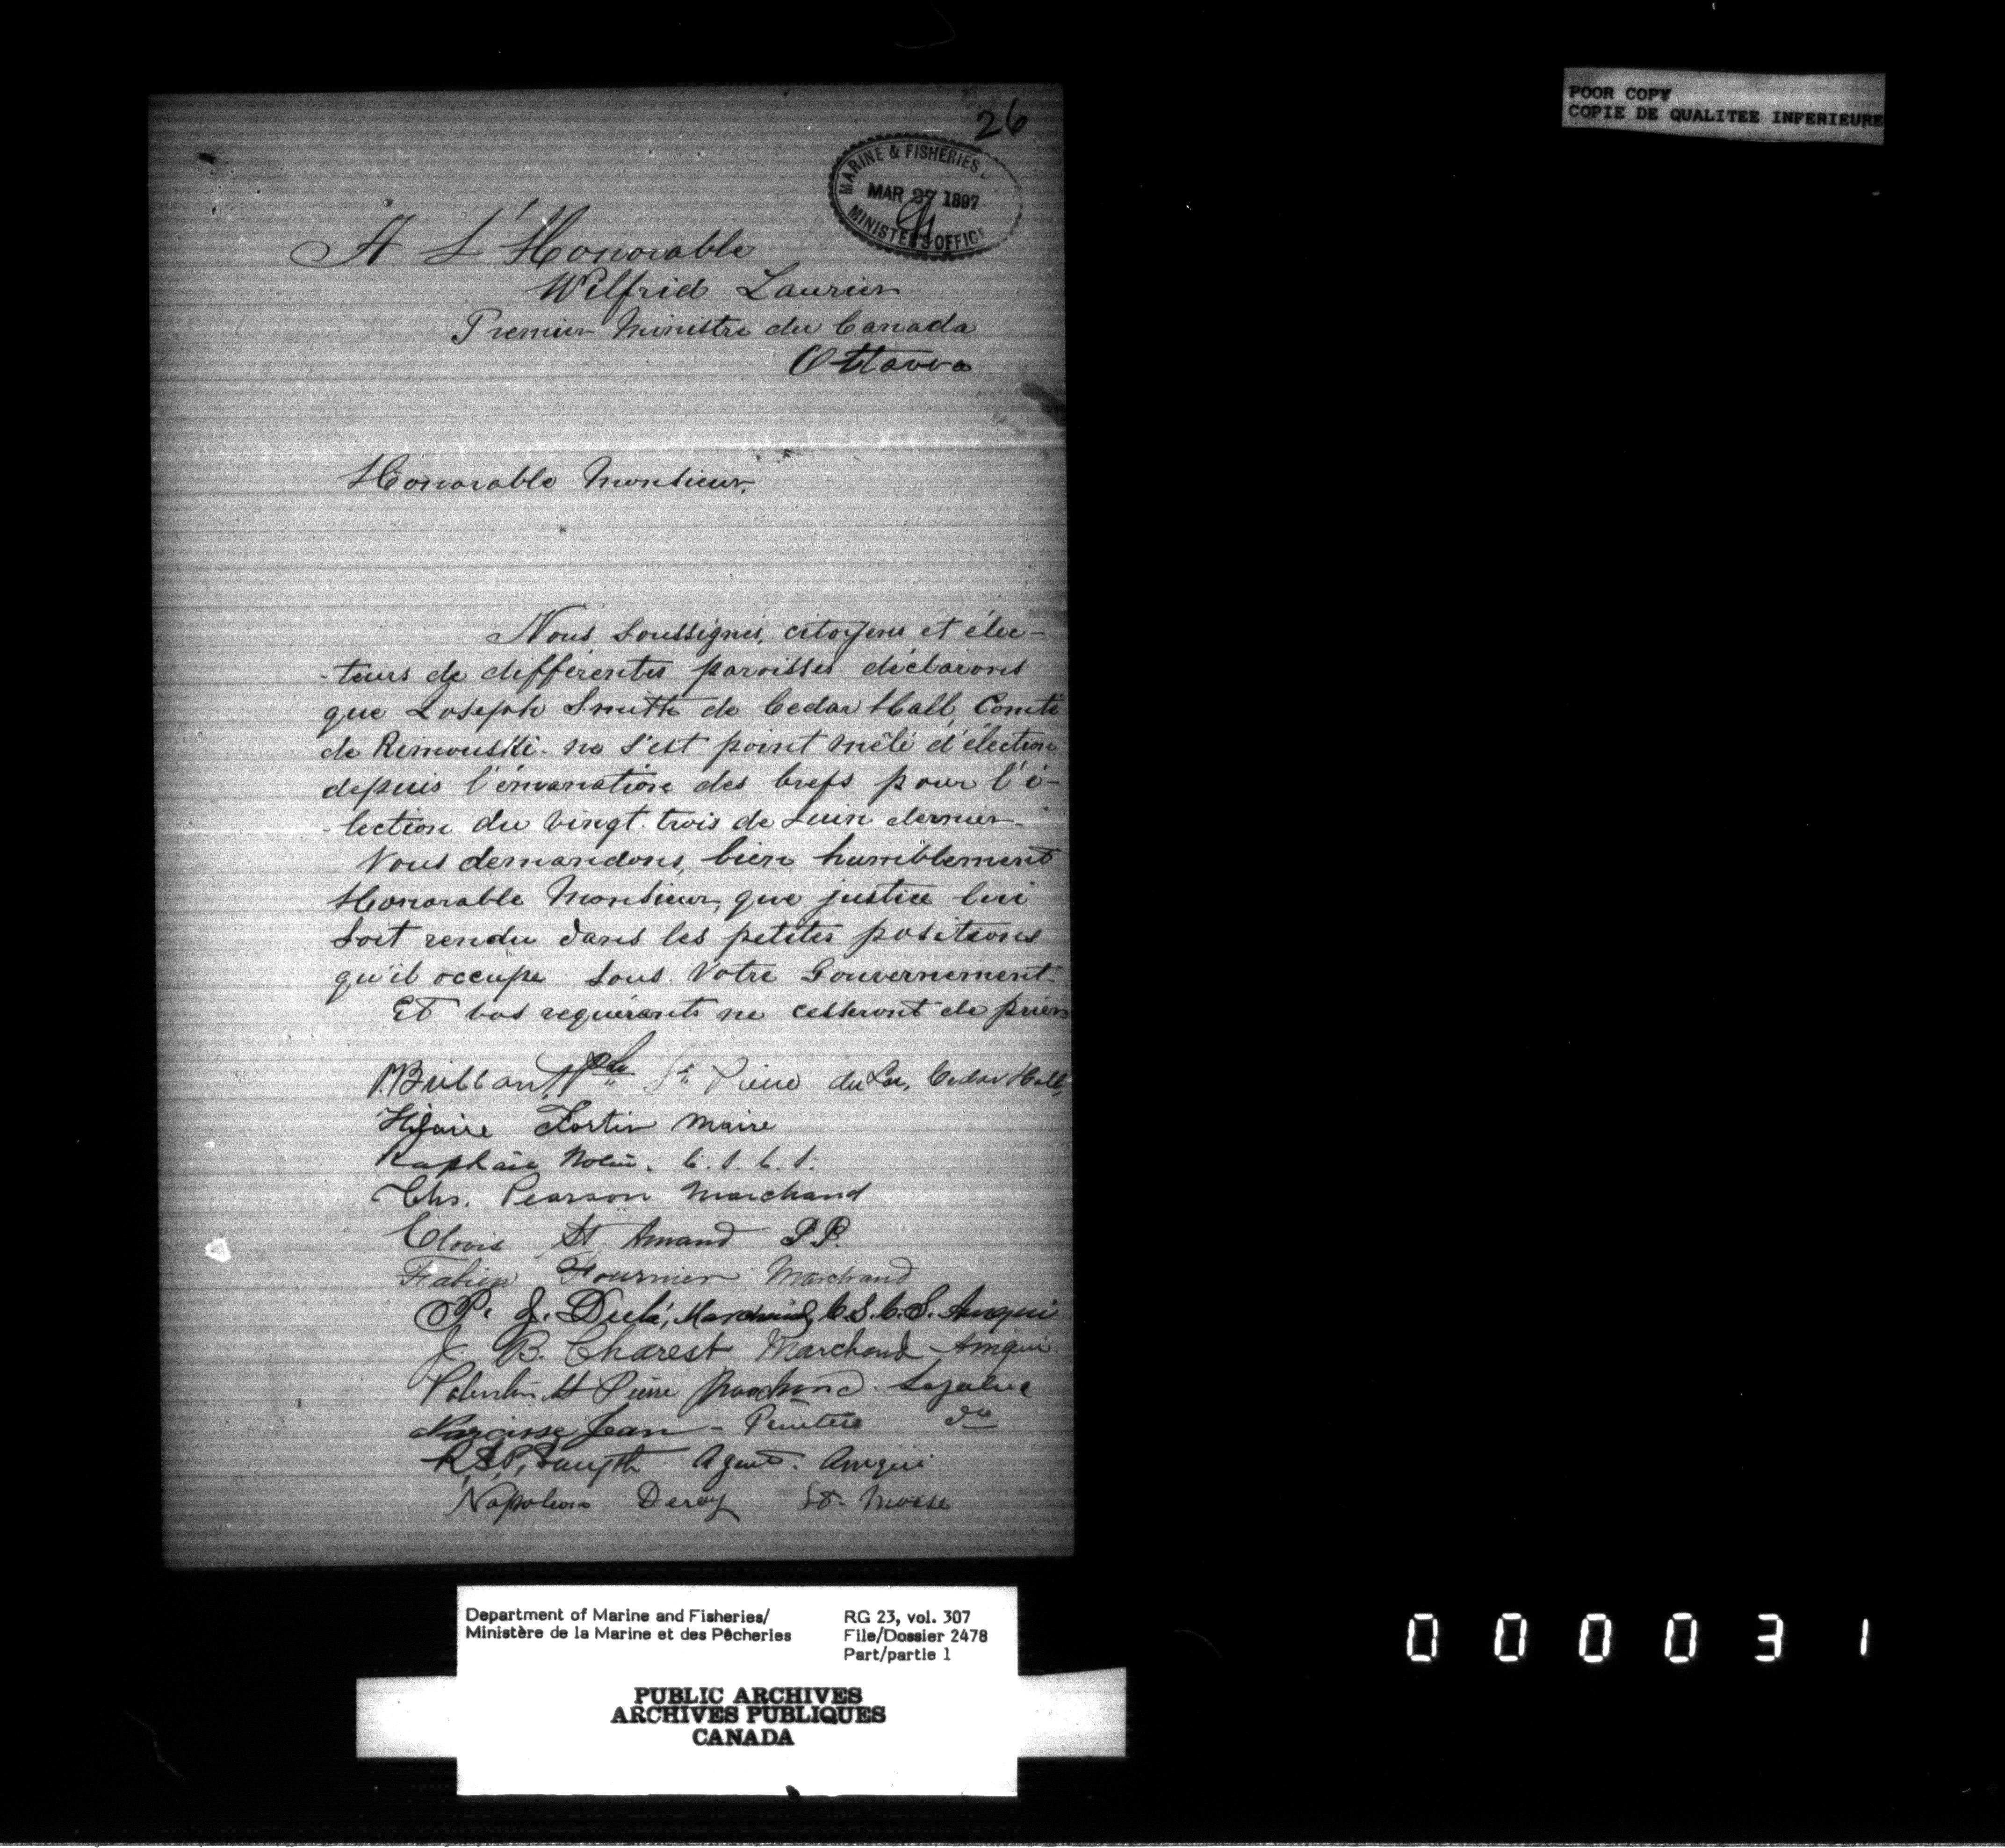 26
MARINE & FISHERIES
MAR 27 1897
MINISTER'S OFFICE
POOR COPY
COPIE DE QUALITEE INFERIEURE
A L'Honorable
Wilfrid Laurier
Premier Ministre du Canada
Ottawa
Honorable Monsieur,
Nous soussignés, citoyens et élec-
-teurs de différentes paroisses déclarons
que Joseph Smith de Cedar Hall, Comté
de Rimouski ne s'est point mêlé d'élection
depuis l'émanation des brefs pour l'é-
-lection du vingt trois de Juin dernier.
Nous demandons, bien humblement
Honorable Monsieur, que justice lui
soit rendu dans les petites positions
qu'il occupe sous Votre Gouvernement.
Et vos requérants ne cesseront de prier
Brillant, St. Pierre du Lac, Cedar Hall,
Hilaire Fortin Maire
Raphaël
Chs. Pearson Marchand
Clovis St. Amand P.P.
Fabien Fournier Marchand
P. J. Dubé, Marchand, C.S.C.S. Amqui
J. B. Charest Marchand Amqui.
St Pierre Marchand. Sayabec
Narcisse Jean - Peintre do
Smyth Agent. Amqui
Napoleon Deroy St. Moise
Department of Marine and Fisheries/
Ministère de la Marine et des Pêcheries
RG 23, vol. 307
File/Dossier 2478
Part/partie 1
PUBLIC ARCHIVES
ARCHIVES PUBLIQUES
CANADA
000031